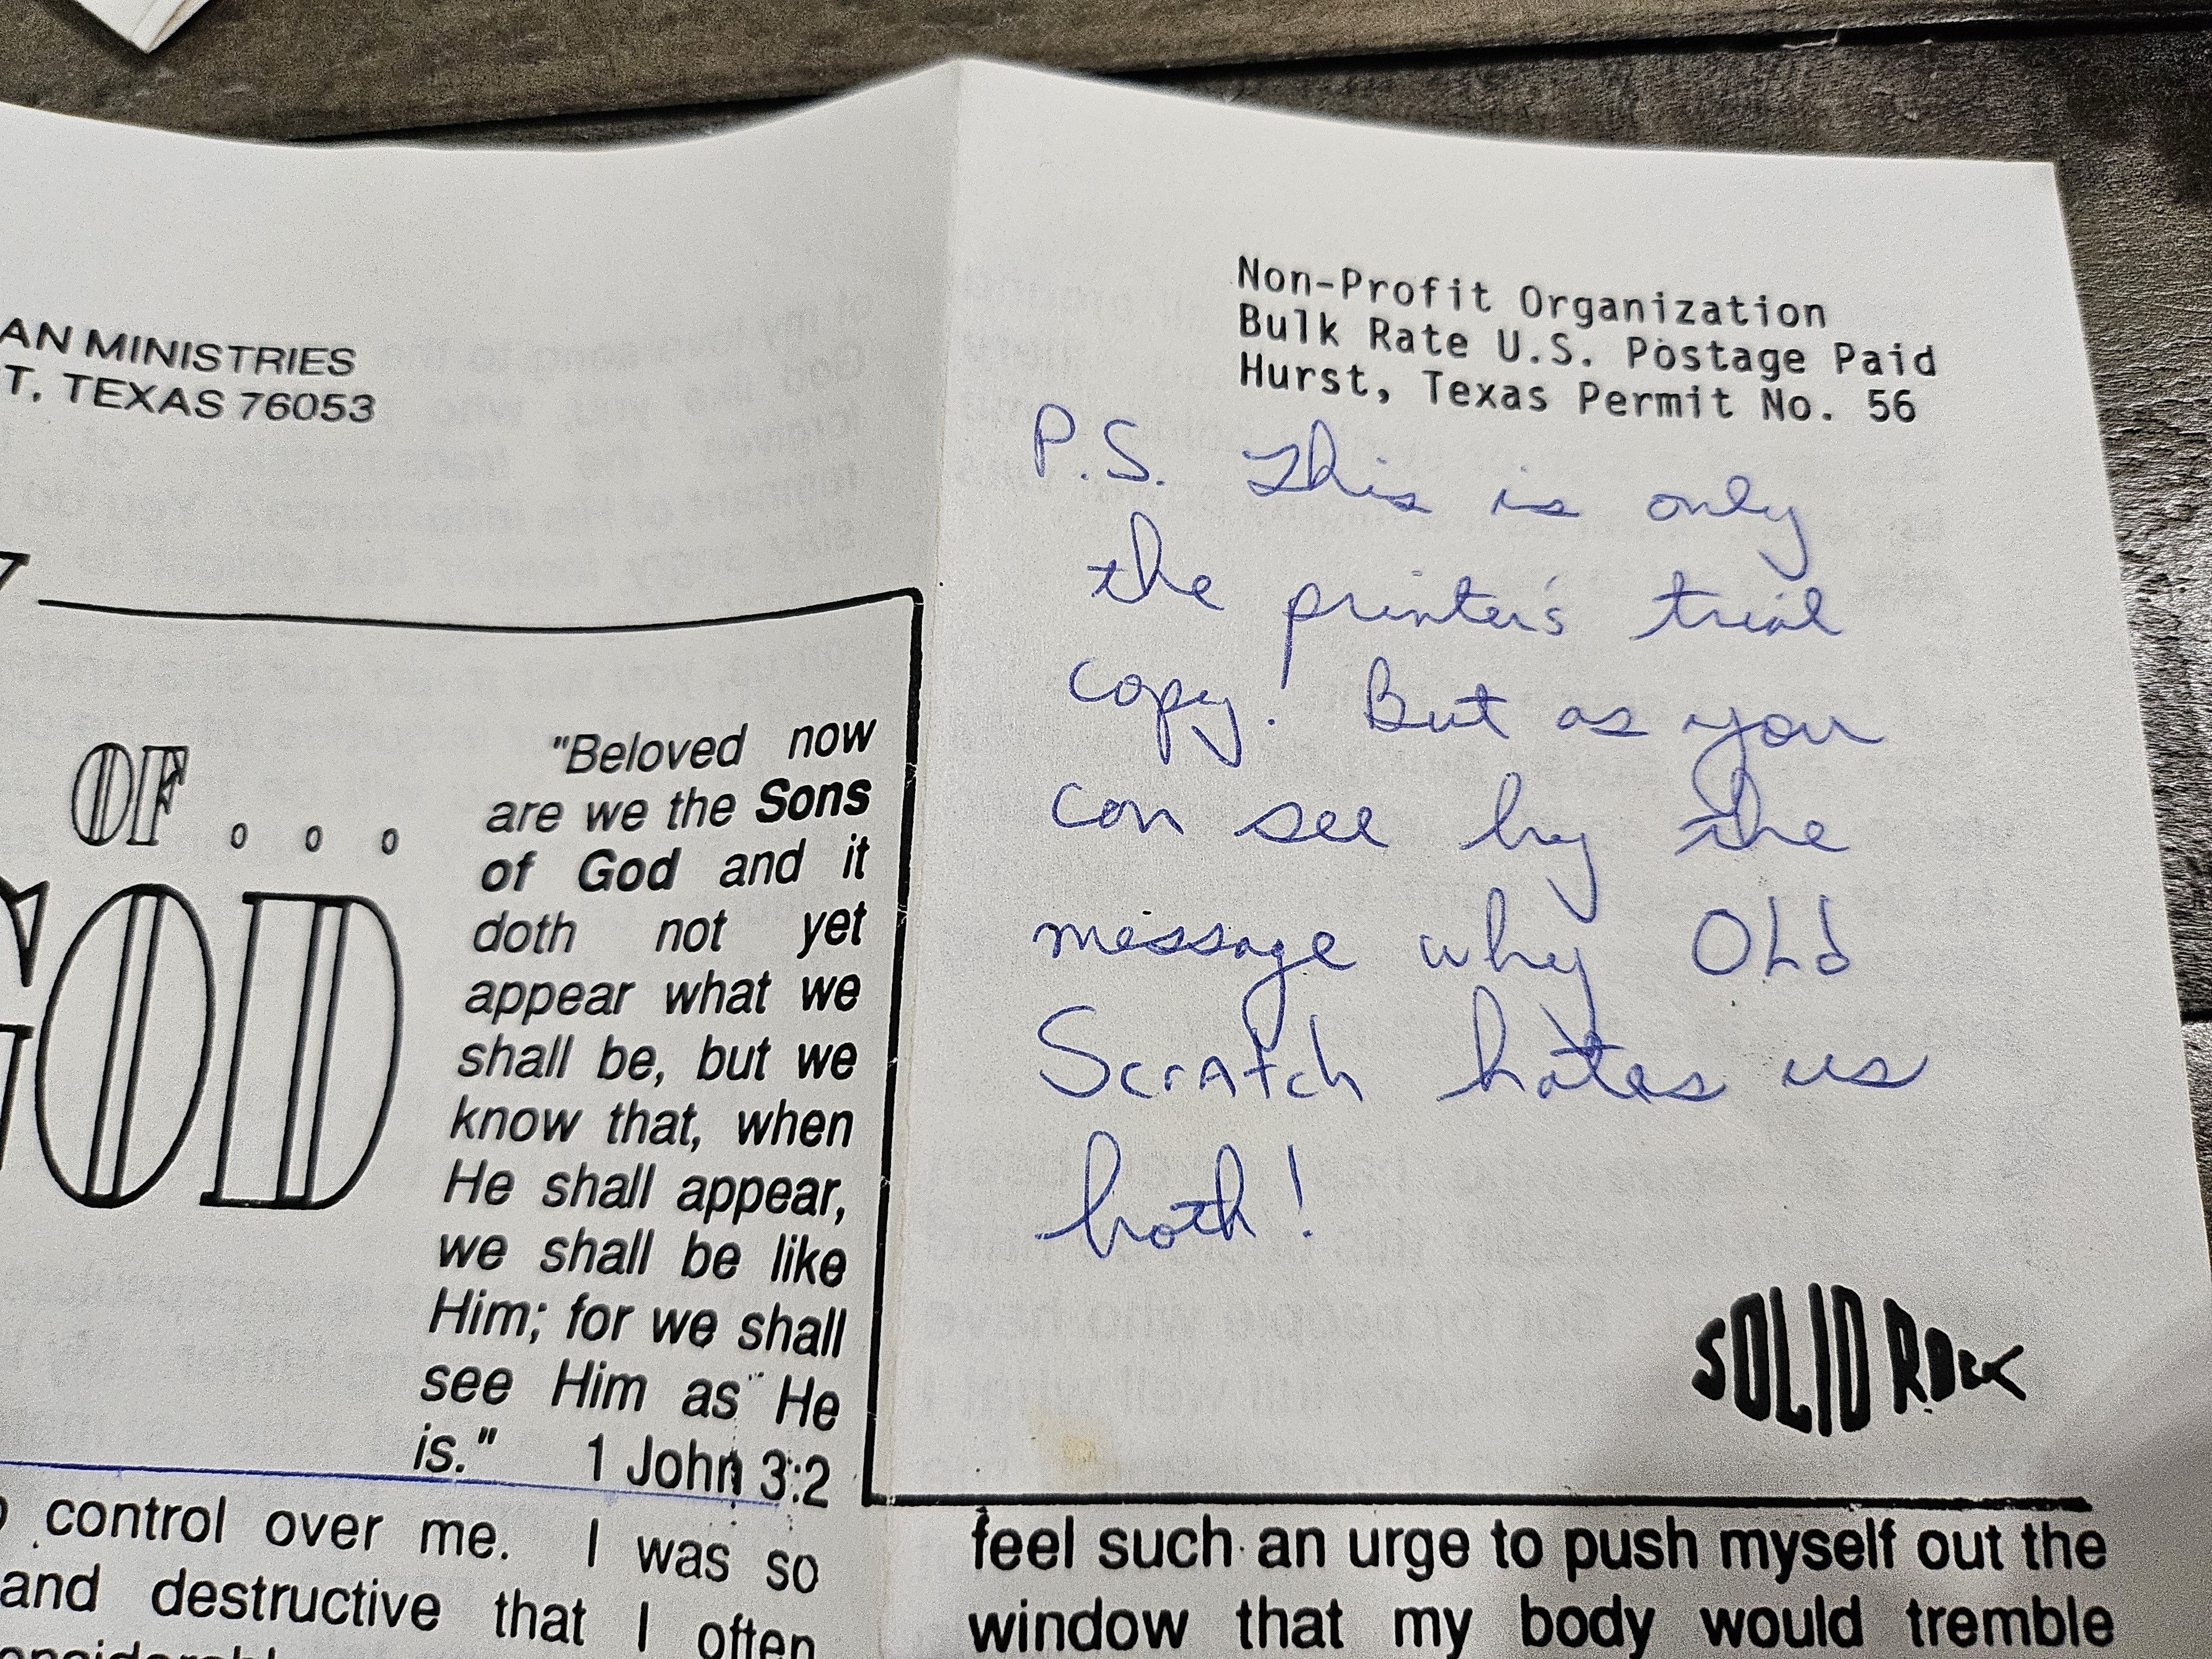 AN MINISTRIES
T, TEXAS 76053
OF...
GOD
"Beloved now
are we the Sons
of God and it
doth not yet
appear what we
shall be, but we
know that, when
He shall appear,
we shall be like
Him; for we shall
see Him as He
is." 1 John 3:2
control over me. I was so
and destructive that I often
Non-Profit Organization
Bulk Rate U.S. Postage Paid
Hurst, Texas Permit No. 56
P.S. This is only
the printer's trial
copy! But as you
can see by the
message why OLd
Scratch hates us
both!
SOLID ROCK
feel such an urge to push myself out the
window that my body would tremble